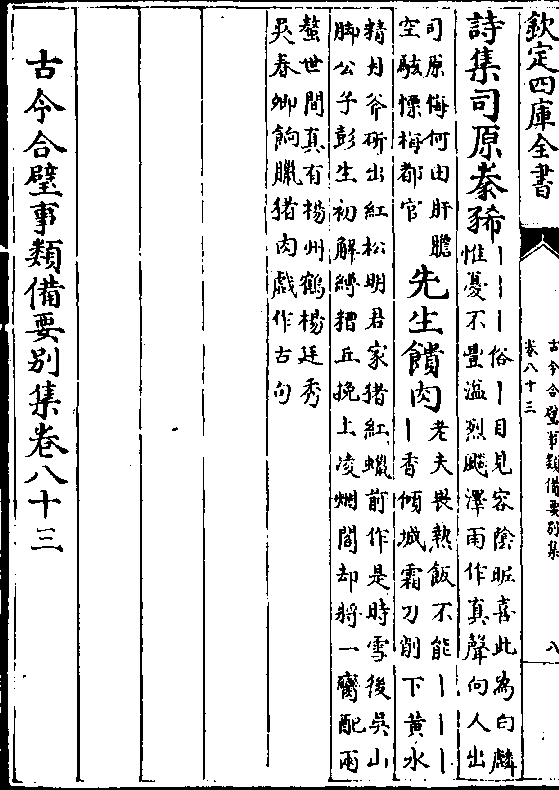 欽定四庫全書
古今合璧事類備要别集
卷八十三
八
詩集司原豢豨
丨丨丨俗丨目見容陰昵喜此為白麟
惟憂不豐溫烈飈澤雨作真聲向人出
司原悔何由肝膽
空駭慄梅都官
先生饋肉
老夫畏熱飯不能丨丨丨
丨香傾城霜刀削下黄水
精月斧斫出紅松明君家猪紅蠟前作是時雪後吳山
脚公子彭生初解縛糟丘挽上凌烟閣却將一臠配兩
螯世間真有楊州鶴楊廷秀
吳春卿餉臘猪肉戲作古句
古今合璧事類備要别集卷八十三